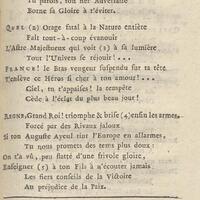 Tu parois, ton fier Adversaire
Borne sa Gloire à t'éviter.
QUEL (2) Orage fatal à la Nature entière
Fait tout-à-coup évanouir
L'Astre Majestueux qui voit (3) à sa lumière
Tout l'Univers se réjouir!...
FRANCE! le Bras vengeur suspendu sur ta tête
T'enlève ce Héros si cher à ton amour...
Ciel, tu t'appaises! la tempête
Cède à l'éclat du plus beau jour!
REGNE, Grand Roi! triomphe & brise (4) enfin les armes,
Forcé par des Rivaux jaloux
Si ton Auguste Ayeul tint l'Europe en allarmes,
Tu nous promets des tems plus doux:
On t'a vû, peu flatté d'une frivole gloire,
Enseigner (5) à ton Fils à n'écouter jamais
Les fiers conseils de la Victoire
Au préjudice de la Paix.